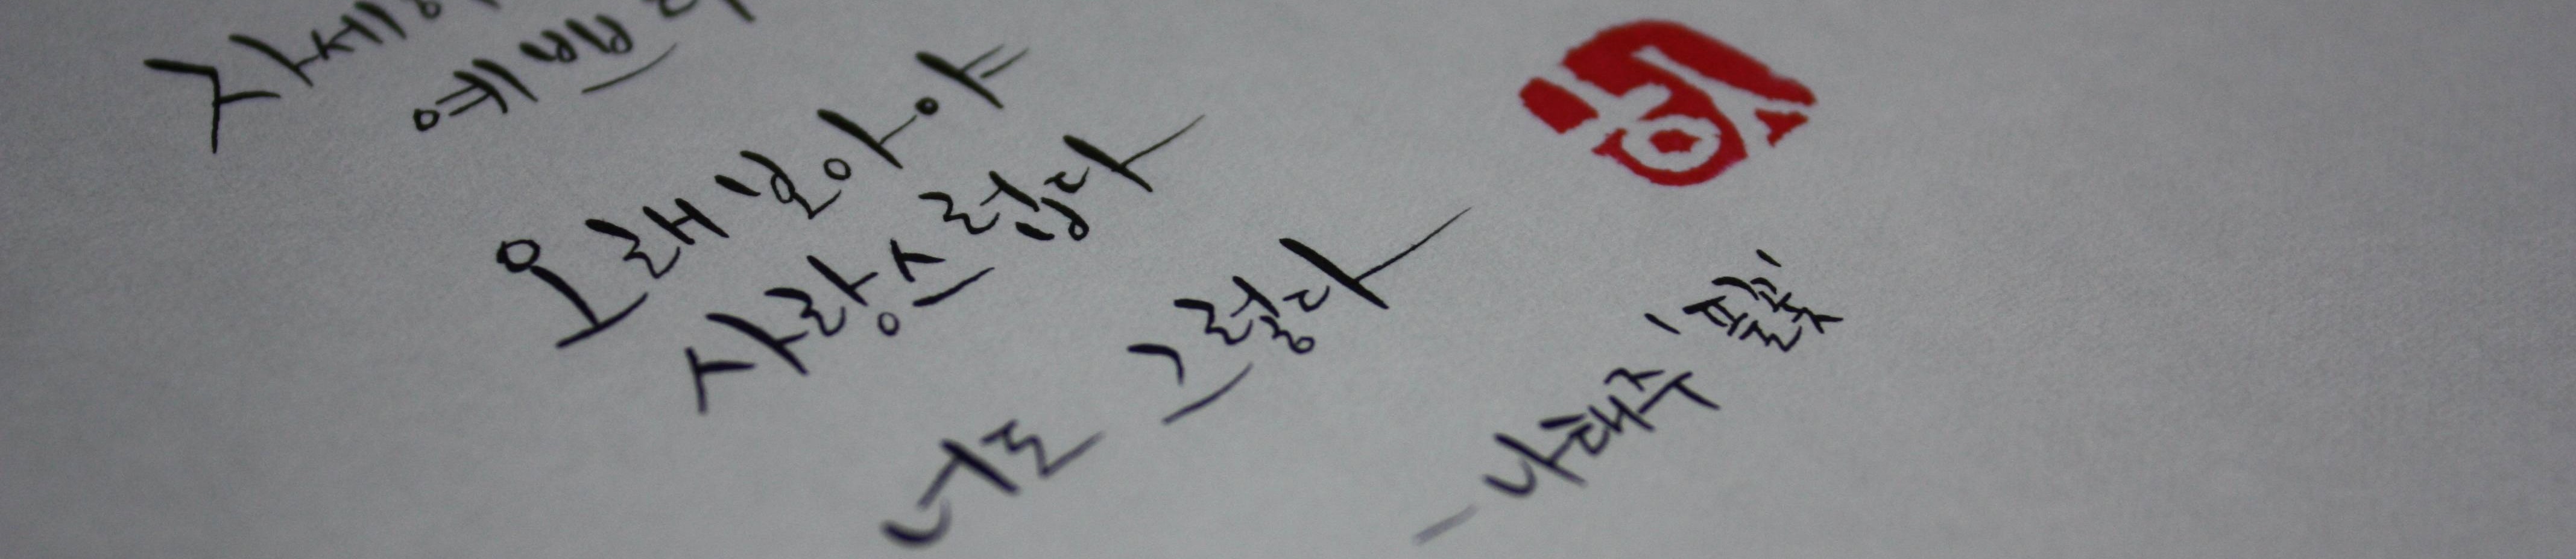 자세히
예쁘다
오래 보아야
사랑스럽다
너도 그렇다
- 나태주 '풀꽃'